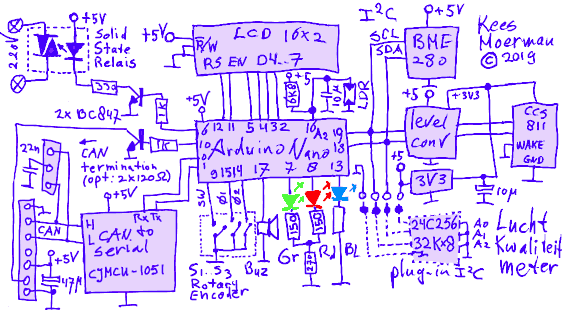 220V
+5V
Solid
State
Relais
330
2x BC847
1K
1K
+5V
LCD 16x2
R/W
RS EN D4..7
+5V
+5
10µ
LDR
I²C
SCL
SDA
+5V
BME
280
Kees
Moerman
© 2019
+5
level
conv
+3V3
CCS
811
WAKE
GND
+5
3V3
10µ
6 12 11 5 4 3 2 10 A2 19
Arduino Nano
9 15 14 17 7 8 13
22n
CAN
termination
(opt: 2x120Ω)
+5V
CAN
H
L
Rx Tx
CAN to
Serial
CJMCU-1051
+5V
47µ
SW
S1..S3
Rotary
Encoder
Buz
150
150
270
Gr
Rd
BL
24C256
32Kx8
A0
A2
plug-in I²C
Lucht
Kwaliteit
meter